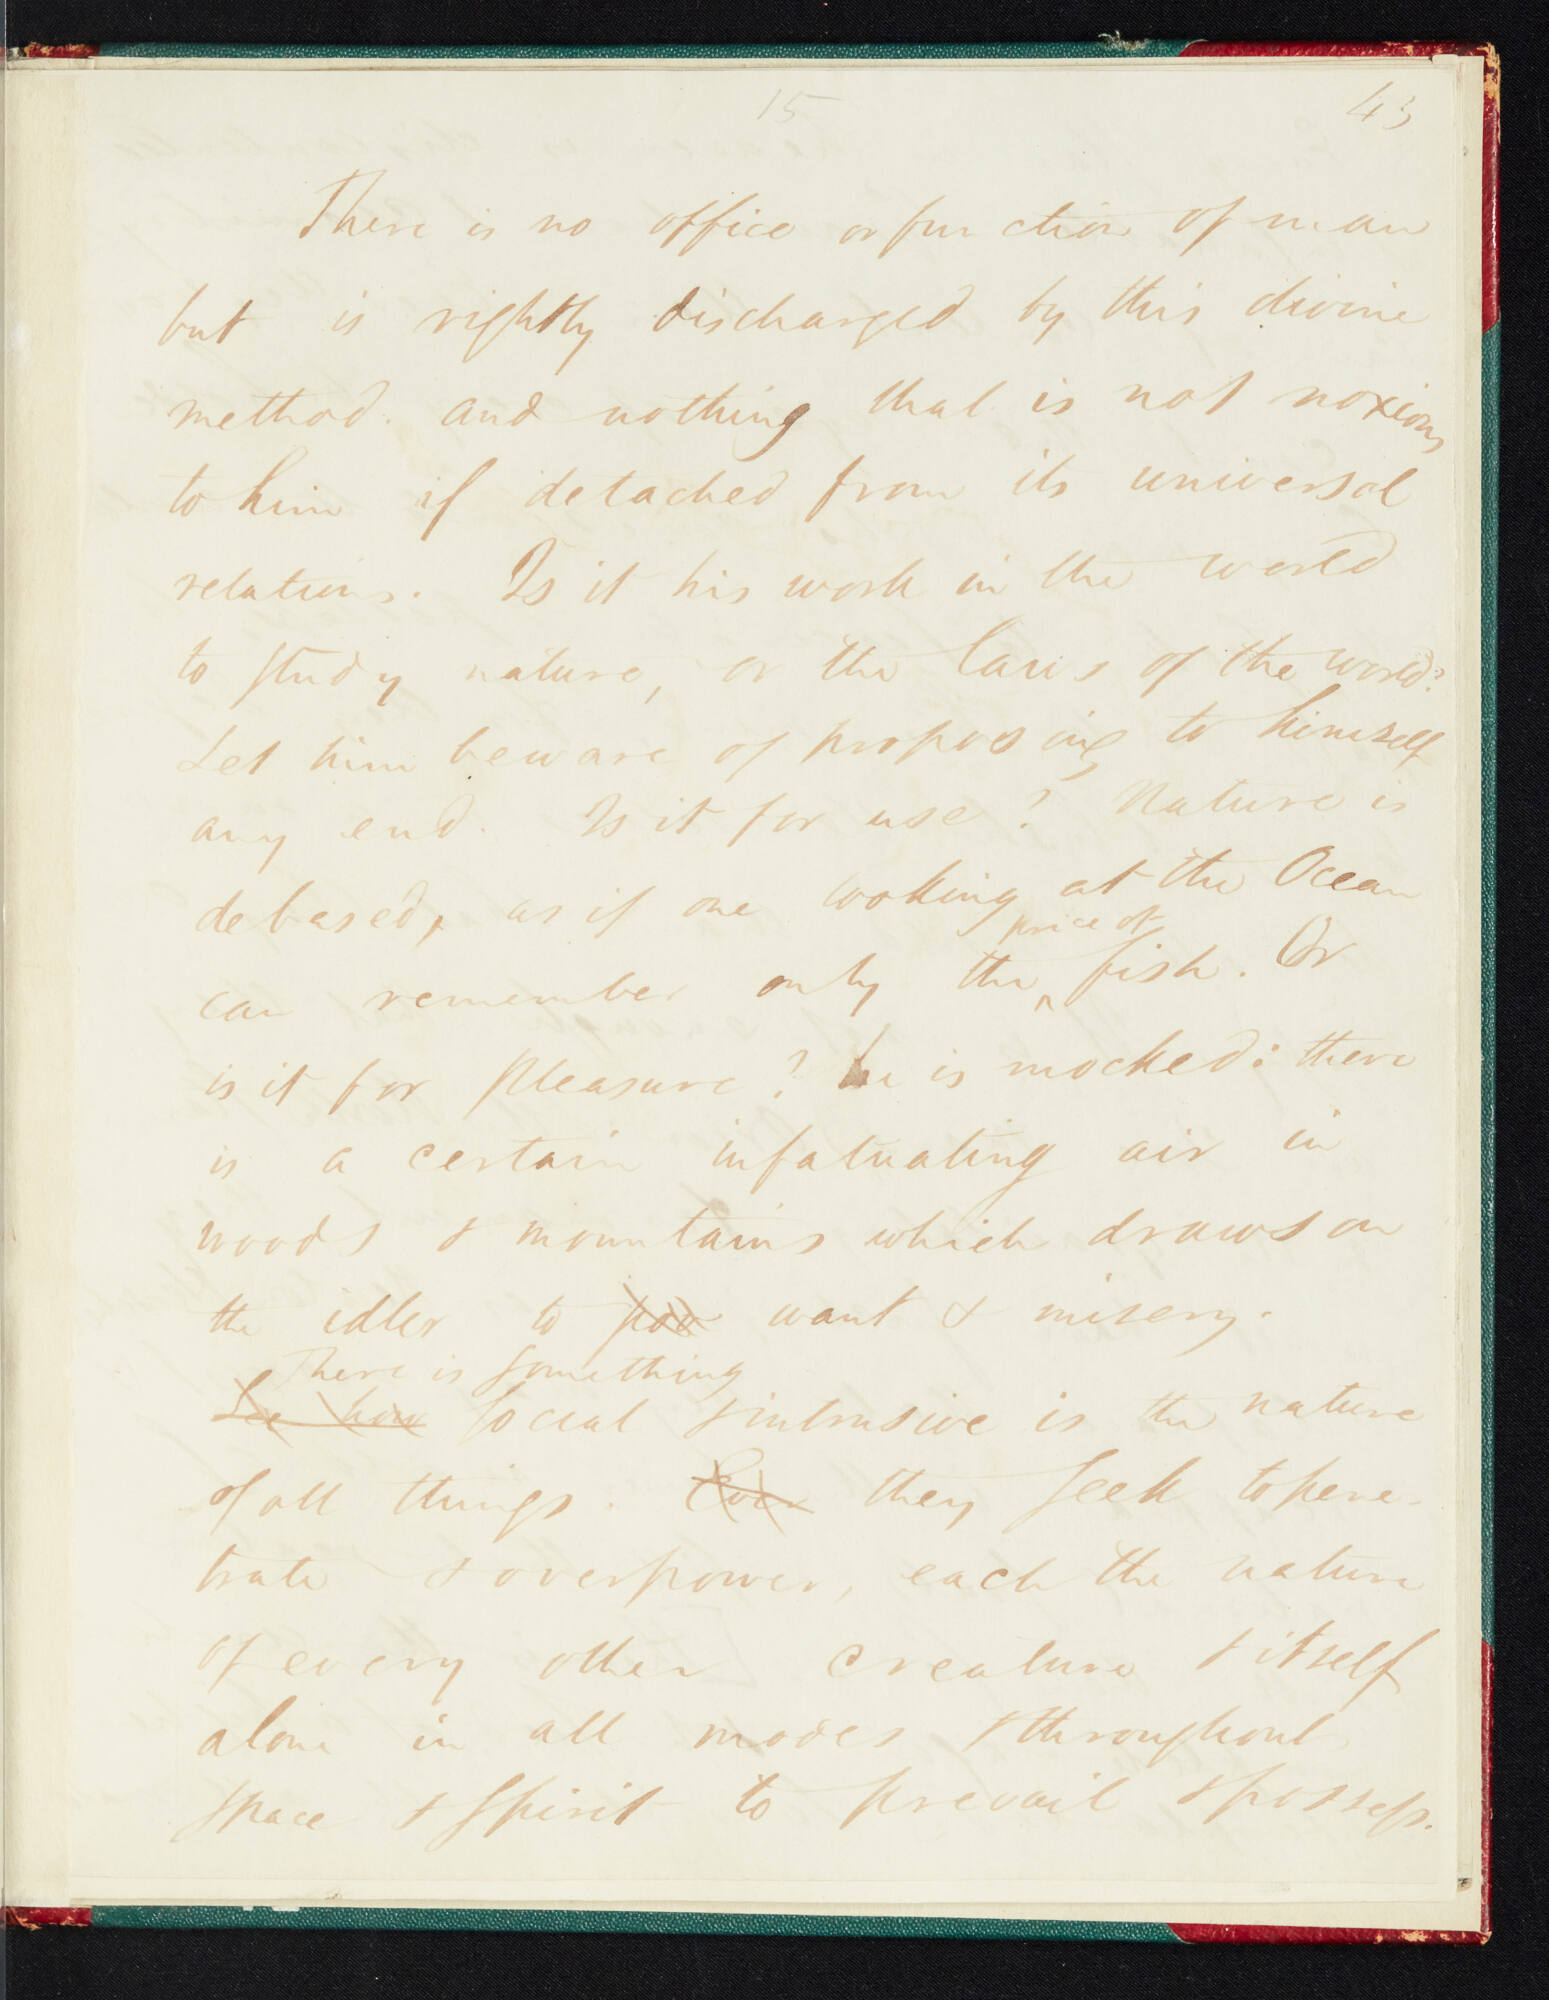 15 43
There is no office or function of man
but is rightly discharged by this divine
method. and nothing that is not noxious
to him if detached from its universal
relations. Is it his work in the world
to study nature, or the laws of the world?
Let him beware of proposing to himself
any end. Is it for use? Nature is
debased, as if one looking at the Ocean
price of
can remember only the ^ fish. Or
is it for pleasure? he is mocked: there
is a certain infatuating air in
woods & mountains which draws on
the idler to pov want & misery.
There is something
See how social & intrusive is the nature
of all things. Ever they seek to pene-
trate & overpower, each the nature
of every other creature & itself
alone in all modes & throughout
space & spirit to prevail & possess.